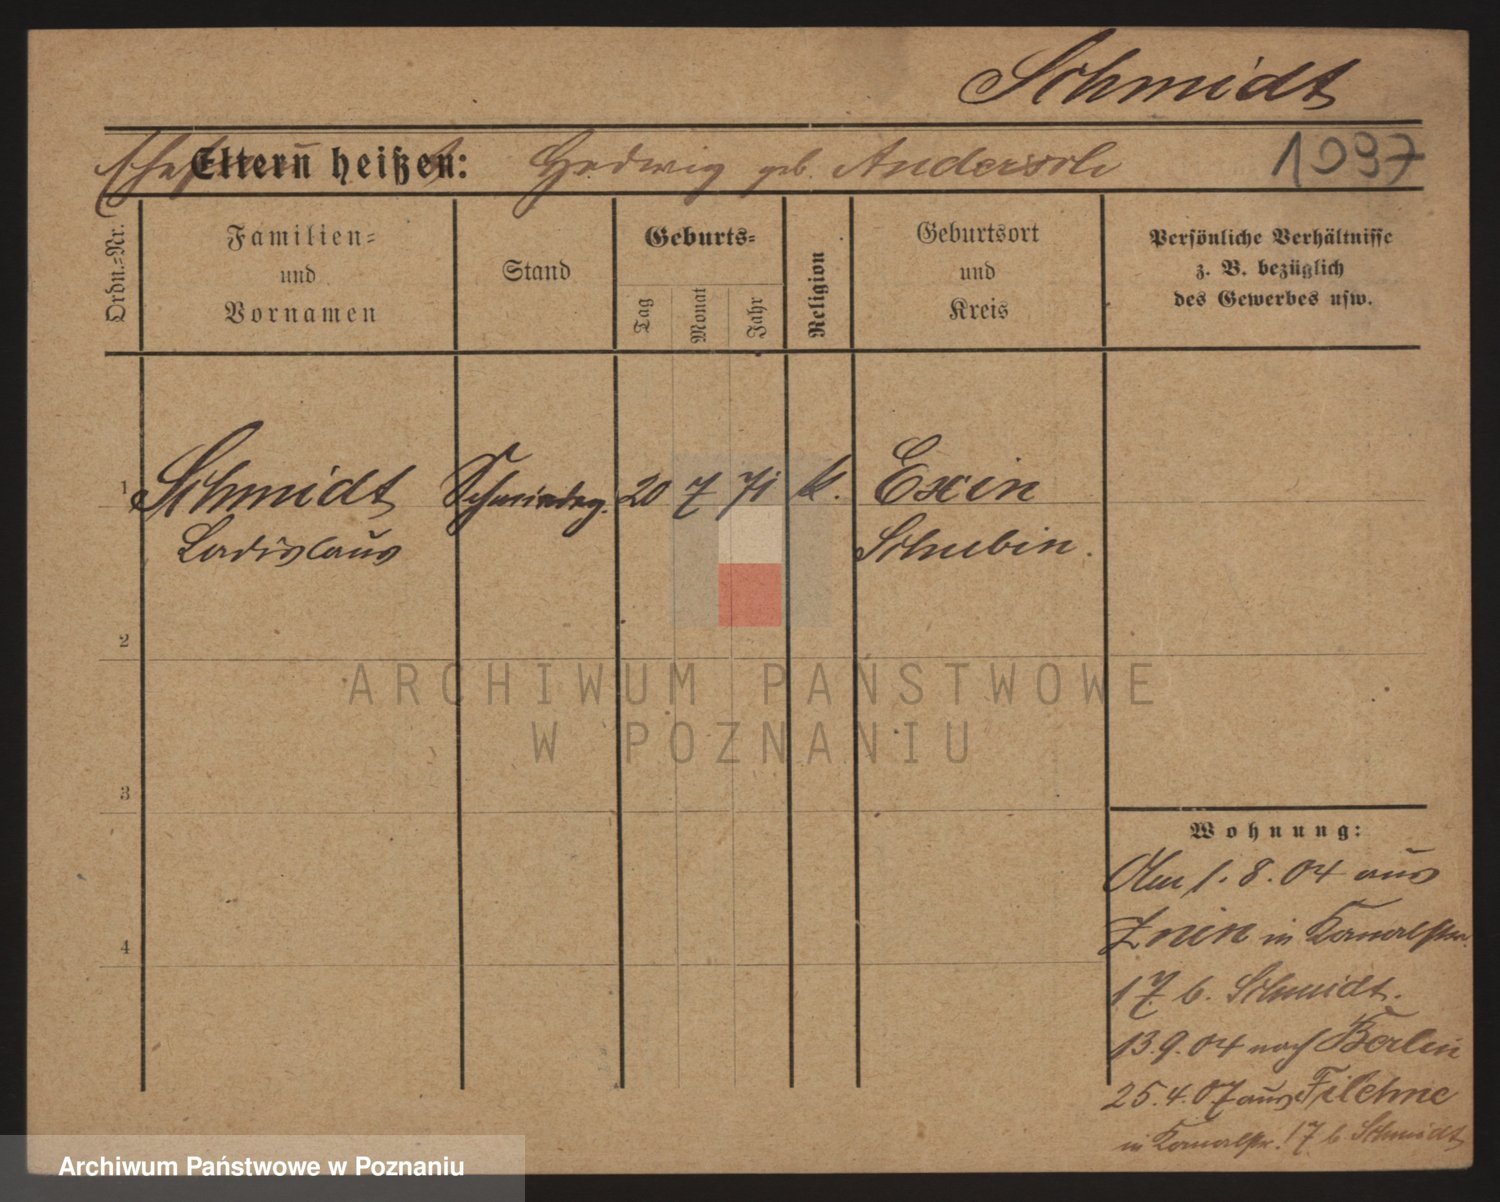 Schmidt
Eltern heißen: Hedwig geb. Andersch 1097
Ordn.-Nr.
Familien-
und
Vornamen
Stand
Geburts-
Tag
Monat
Jahr
Religion
Geburtsort
und
Kreis
Persönliche Verhältnisse
z. B. bezüglich
des Gewerbes usw.
1 Schmidt 20 7 71 k. Exin
Ladislaus Schubin.
2
3
4
Wohnung:
Am 1.8.04 aus
Znin in Kanalstr.
17 b. Schmidt.
13.9.04 nach Berlin
25.4.07 aus Filehne
in Kanalstr. 17 b Schmidt
ARCHIWUM PAŃSTWOWE
W POZNANIU
Archiwum Państwowe w Poznaniu